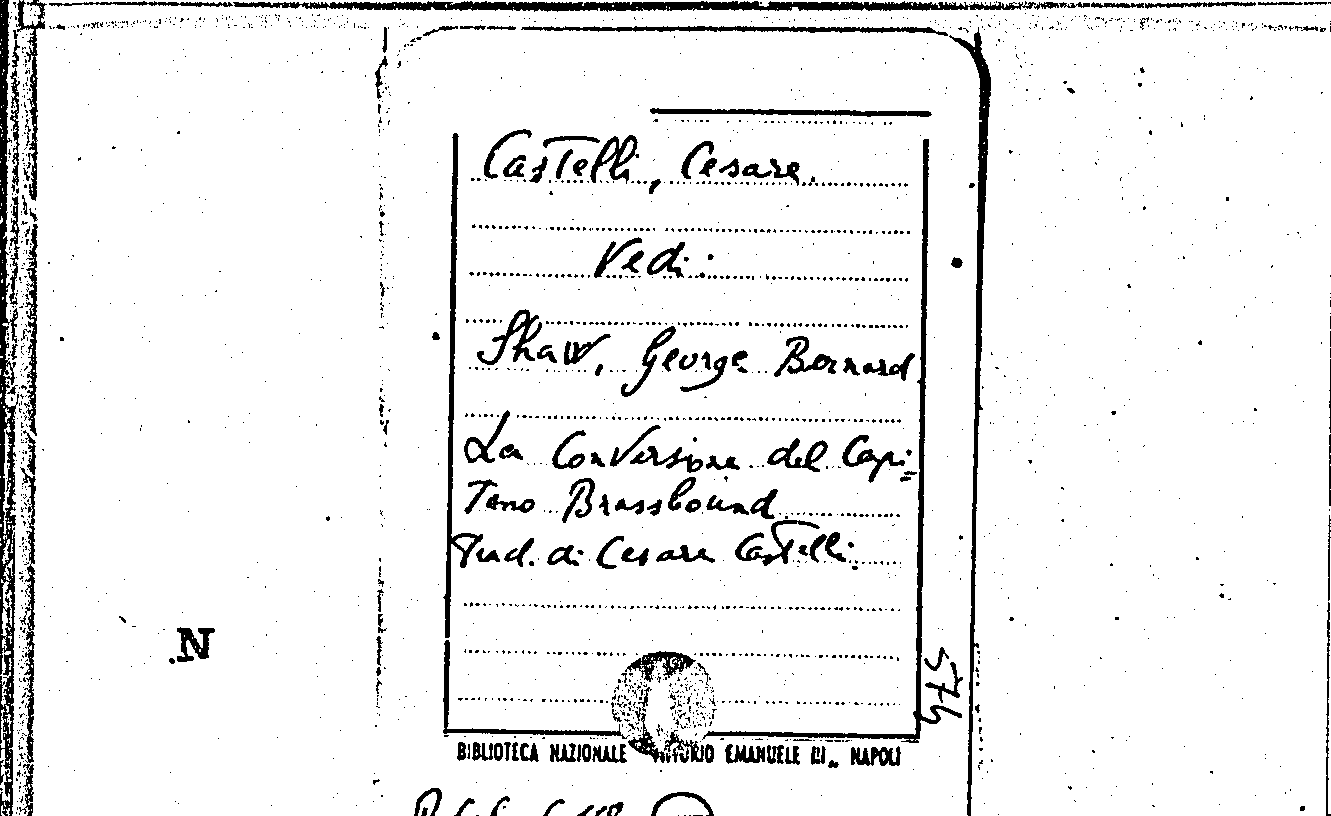 Castelli, Cesare.
Vedi:
Shaw, George Bernard.
La Conversione del Capi=
tano Brassbound
Trad. di Cesare Castelli.
.N
579
BIBLIOTECA NAZIONALE VITTORIO EMANUELE III„ NAPOLI